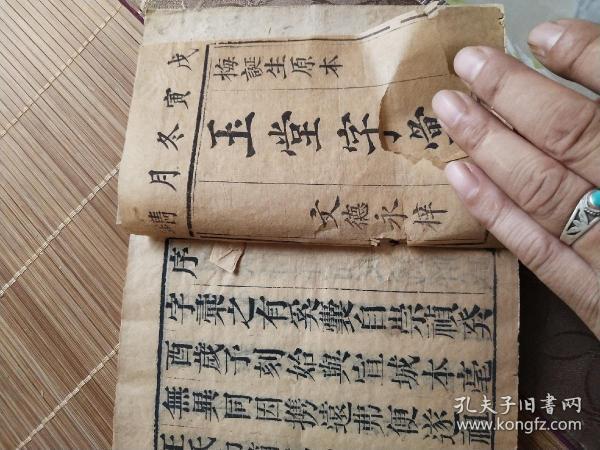 戊寅冬月鐫
梅誕生原本
玉堂字
文德永梓
序
字彙之有奚囊自崇禎癸
酉歲予刻始與宣城本毫
無異同因携遠弗便遂
王氏
孔夫子旧书网
www.kongfz.com